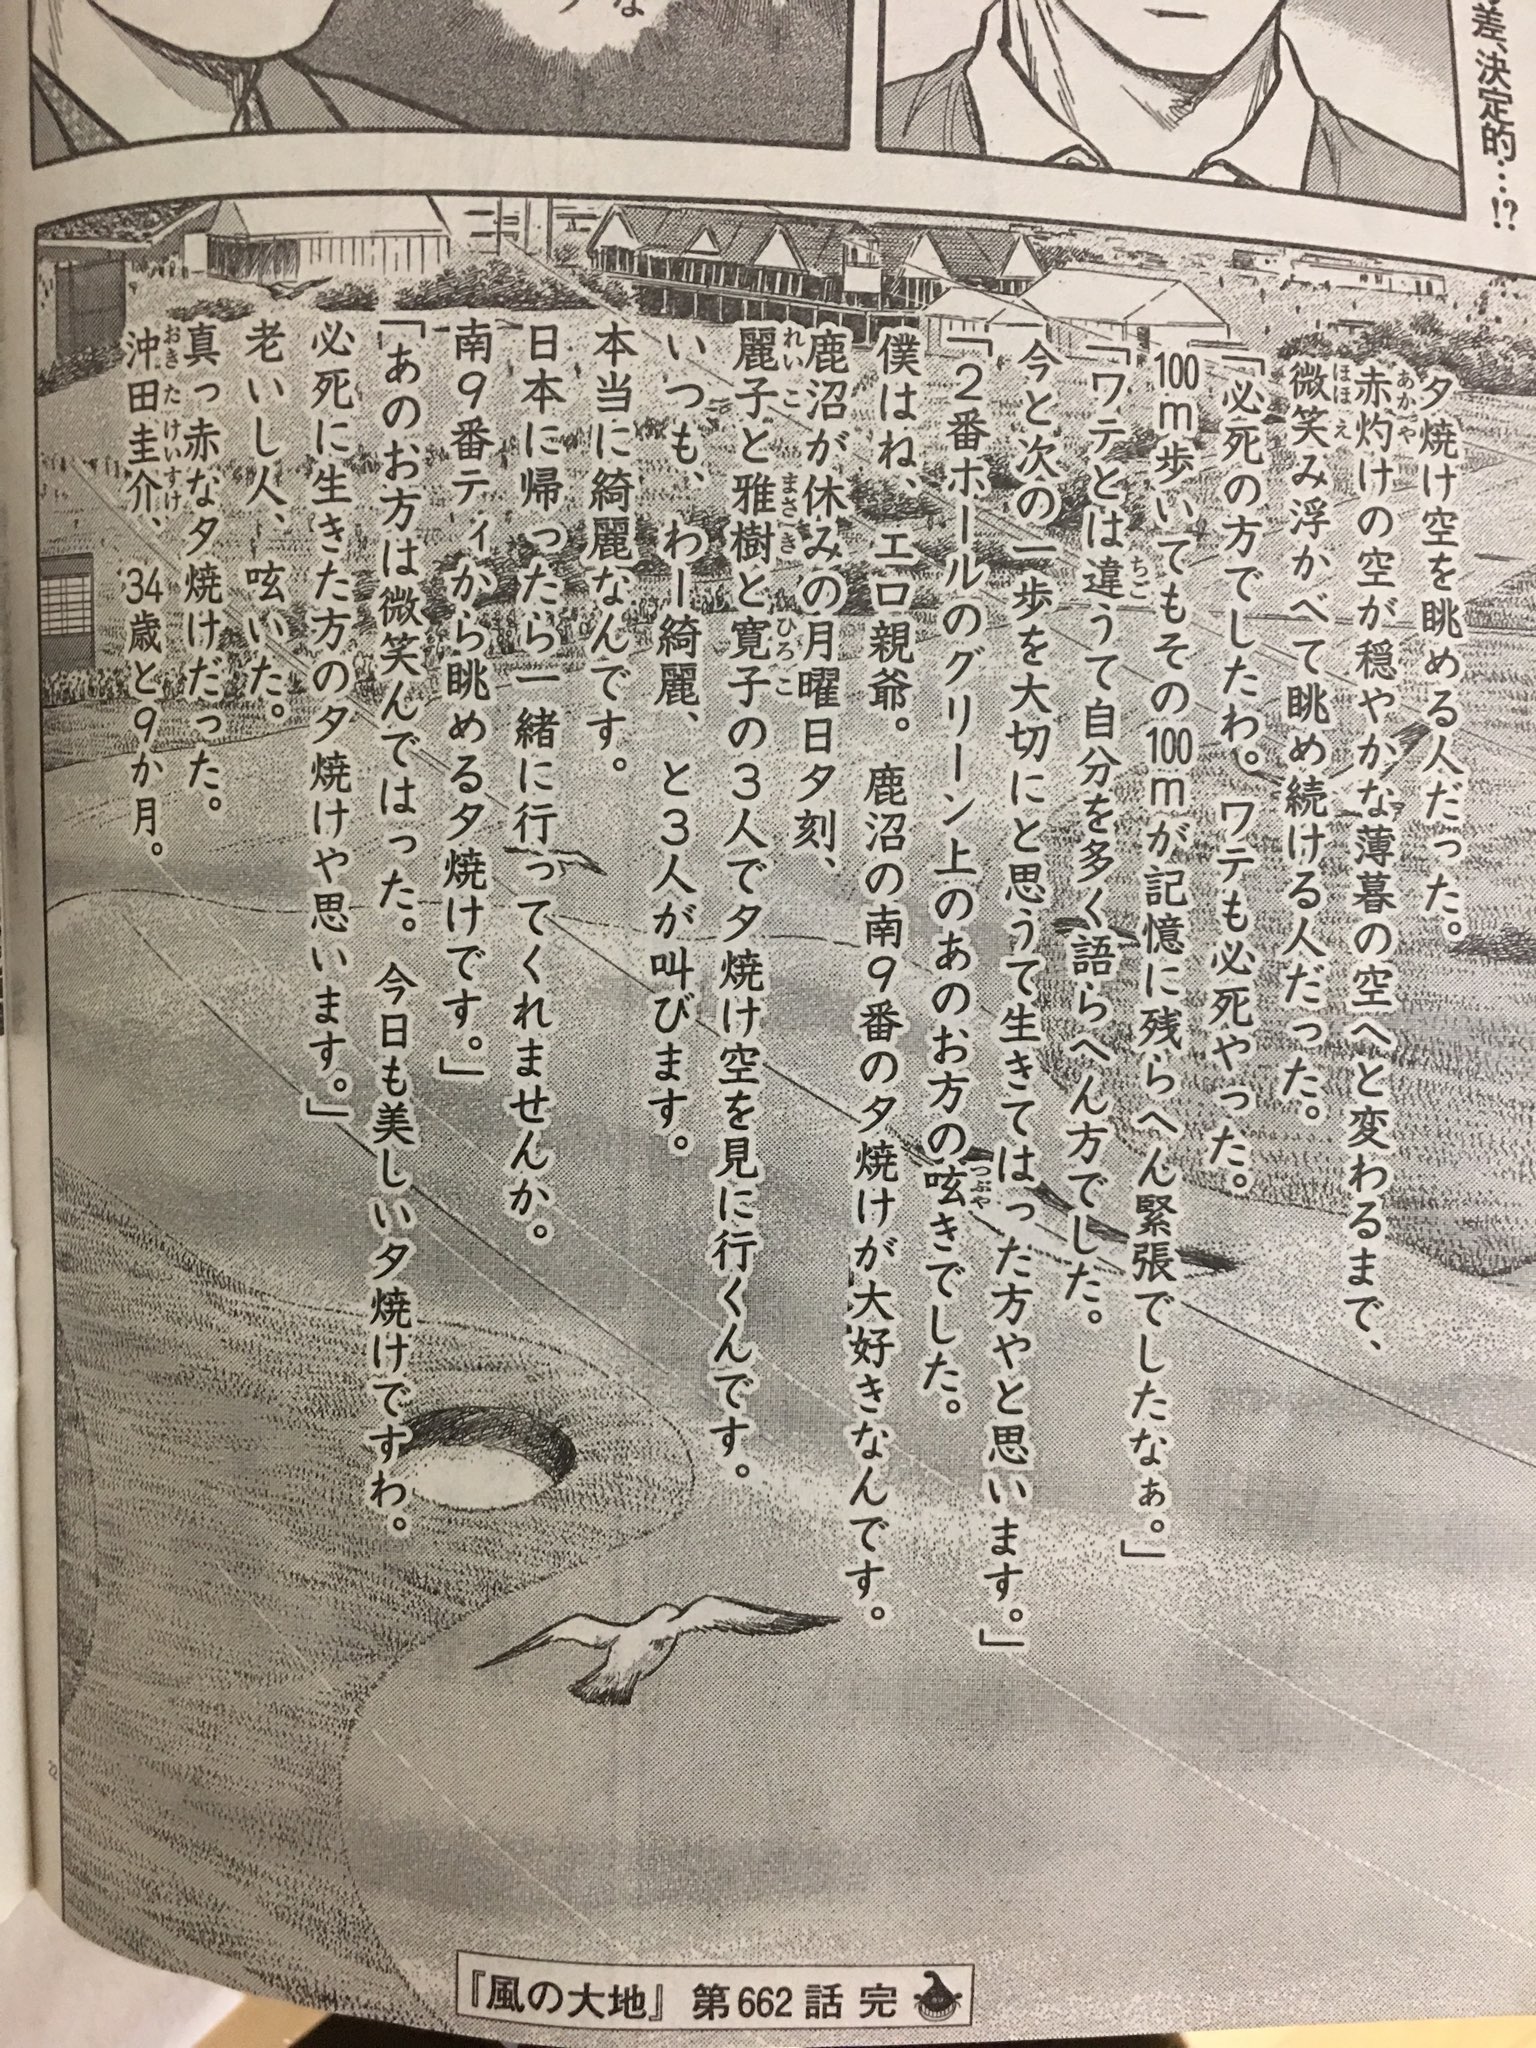 差、決定的…!?
な
夕焼け空を眺める人だった。
赤灼けの空が穏やかな薄暮の空へと変わるまで、
微笑み浮かべて眺め続ける人だった。
「必死の方でしたわ。ワテも必死やった。
100m歩いてもその100mが記憶に残らへん緊張でしたなぁ。」
「ワテとは違うて自分を多く語らへん方でした。
今と次の一歩を大切にと思うて生きてはった方やと思います。」
「2番ホールのグリーン上のあのお方の呟きでした。
僕はね、エロ親爺。鹿沼の南9番の夕焼けが大好きなんです。
鹿沼が休みの月曜日夕刻、
麗子と雅樹と寛子の3人で夕焼け空を見に行くんです。
いつも、わー綺麗、と3人が叫びます。
本当に綺麗なんです。
日本に帰ったら一緒に行ってくれませんか。
南9番ティから眺める夕焼けです。」
「あのお方は微笑んではった。今日も美しい夕焼けですわ。
必死に生きた方の夕焼けや思います。」
老いし人、呟いた。
真っ赤な夕焼けだった。
沖田圭介、34歳と9か月。
22
『風の大地』第662話 完